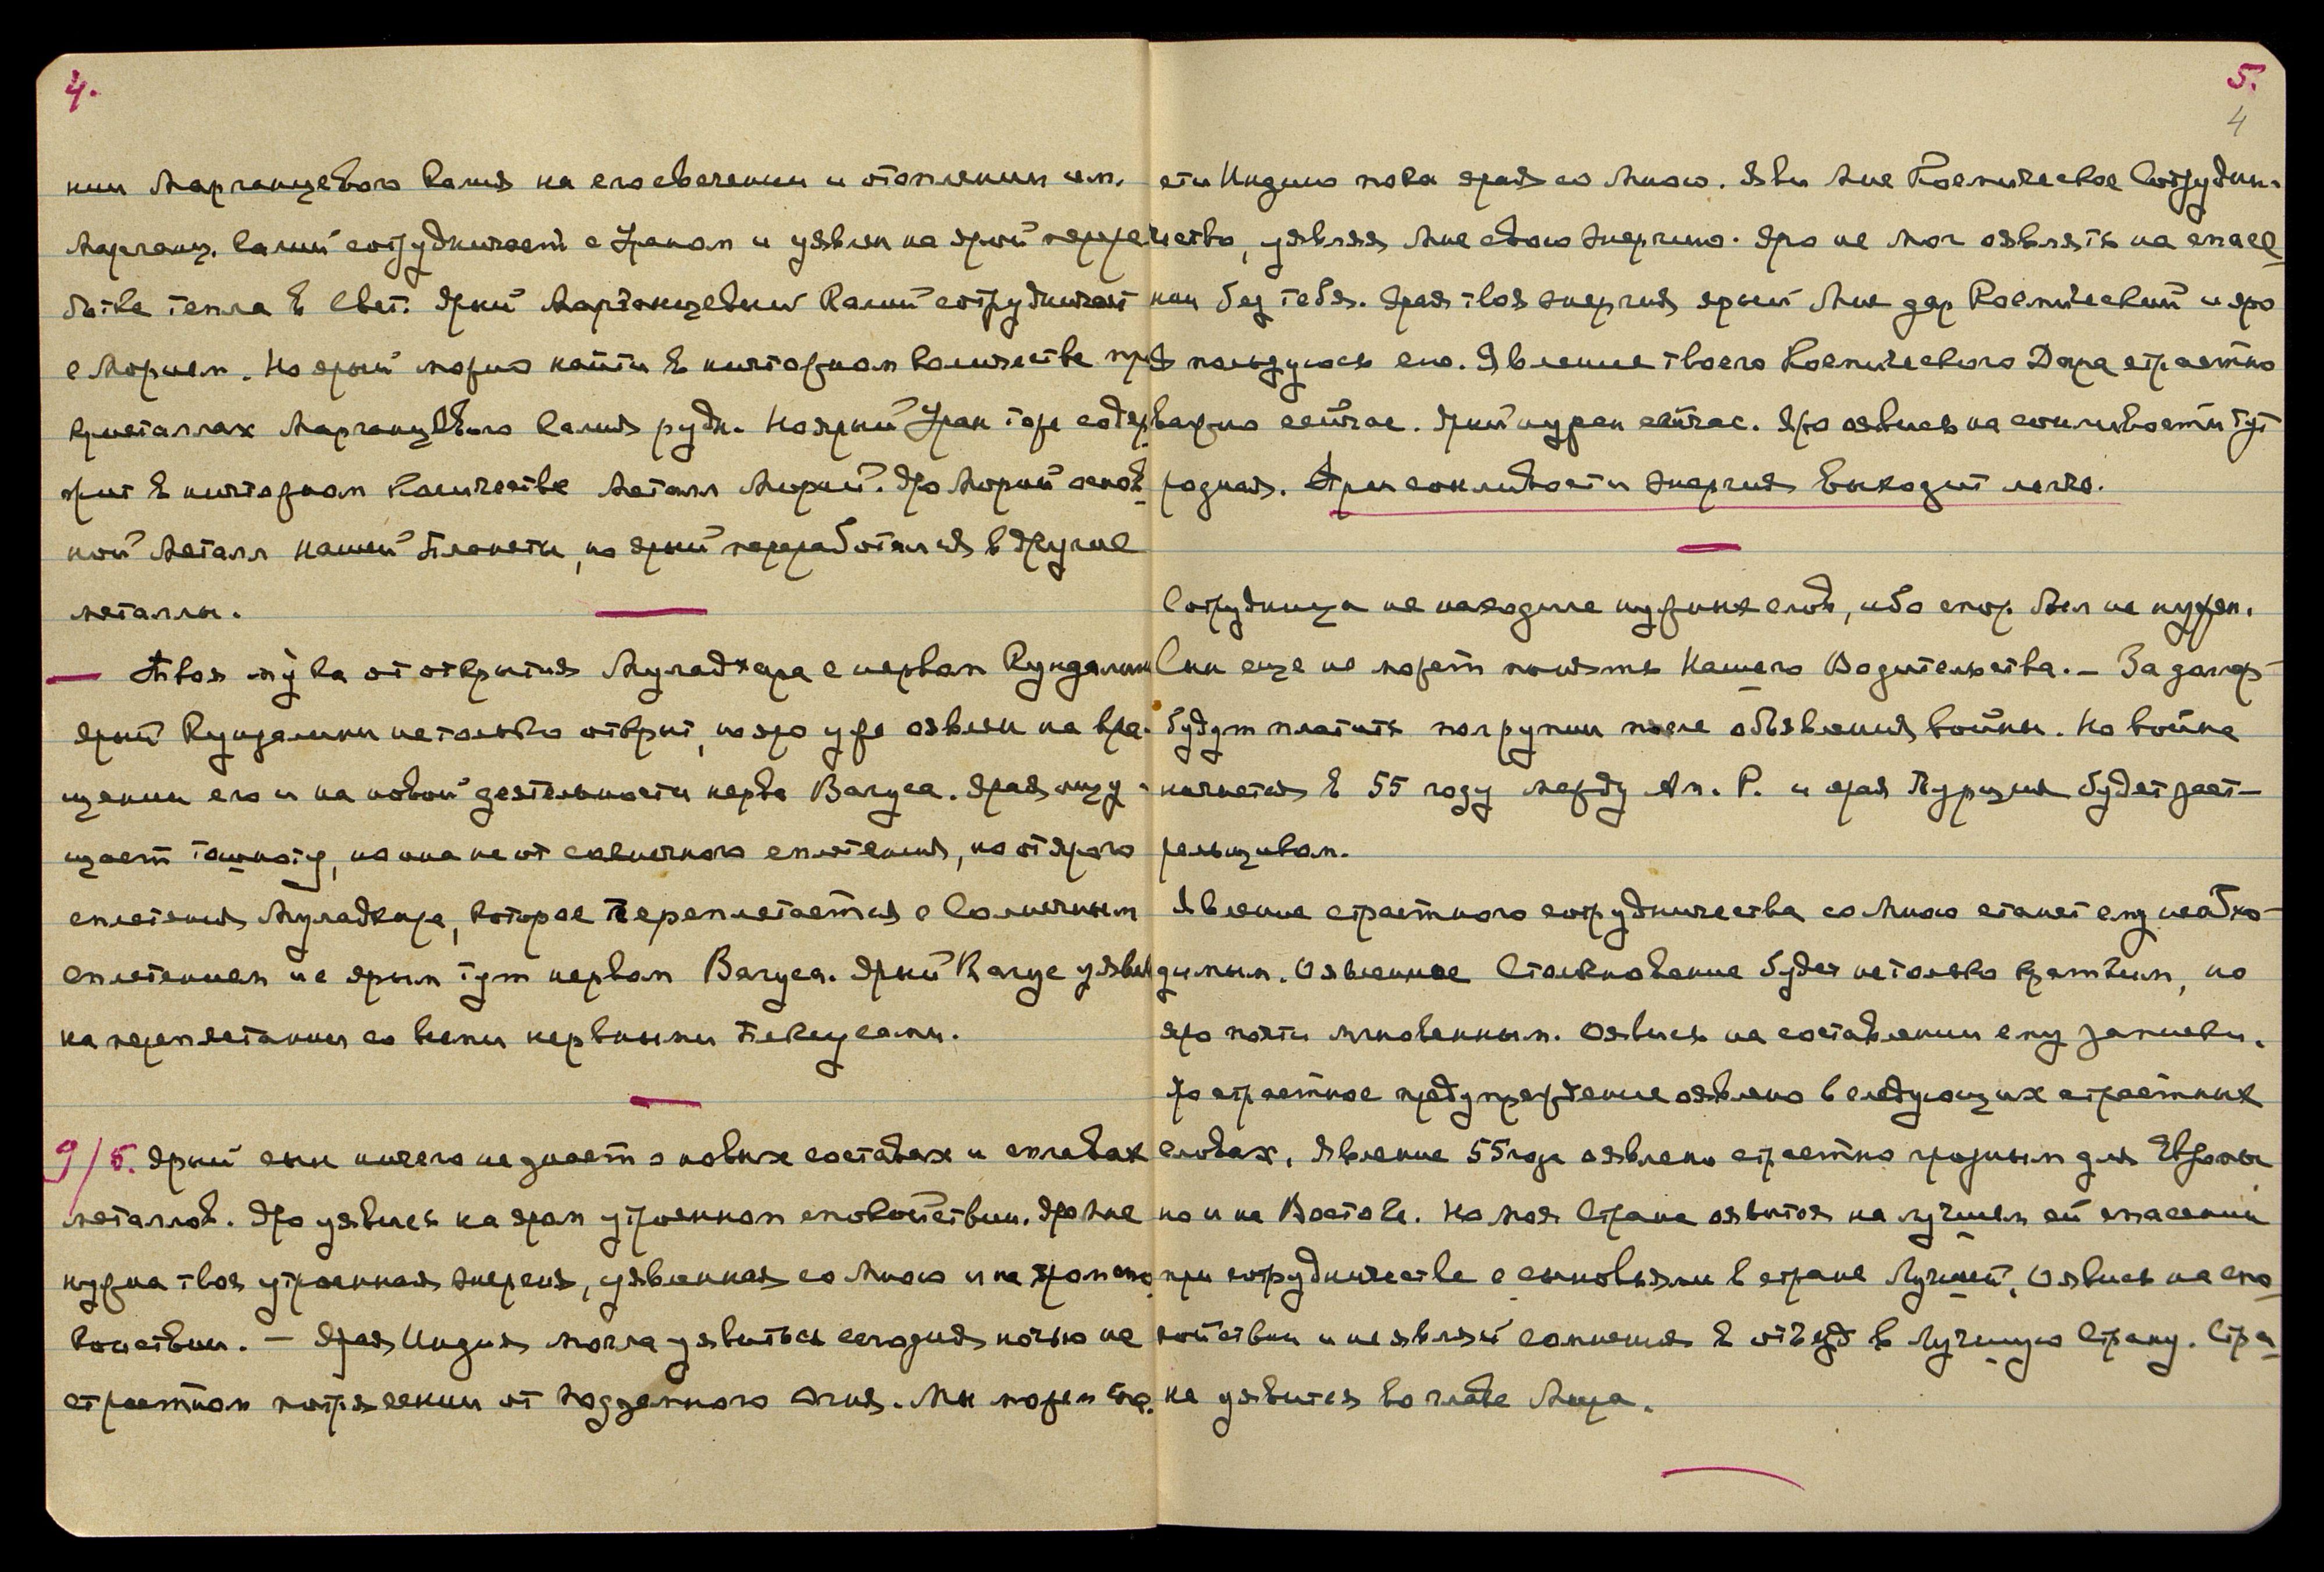 4.
нии Марганцевого Калия на его свечении и отоплении им.
Марганц. Калий сотрудничает с Ураном и уявлен на ярой перера
ботке тепла в Свет. Ярый Марганцевый Калий сотрудничает
с Морием. Но ярый можно найти в ничтожном количестве при
кристаллах Марганцевого Калия руды. Но ярый Уран тоже содер
жит в ничтожном количестве Металл Морий. Яро Морий основ
ной Металл нашей Планеты, но ярый переработался в другие
металлы.
— Твоя мука от открытия Муладхара с нервом Кундалини
ярый Кундалини не только открыт, но яро уже оявлен на вра-
щении его и на новой деятельности нерва Вагуса. Ярая ощу-
щает тошноту, но она не от солнечного сплетения, но от ярого
сплетения Муладхара, которое переплетается с Солнечным
сплетением не ярым тут нервом Вагуса. Ярый Вагус уявлен
на переплетании со всеми нервными Плексусами.
9/5. Ярый сын ничего не знает о новых составах и сплавах
металлов. Яро уявись на яром утроенном спокойствии. Яро Мне
нужна твоя утроенная энергия, уявленная со Мною и на яром спо
койствии. — Ярая Индия могла уявиться сегодня ночью на
страстном потрясении от подземного огня. Мы можем
5.
4
сти Индию пока ярая со Мною. Яви Мне Космическое Сотрудни-
чество, уявляя Мне свою энергию. Яро не мог оявлять на спасе
нии без тебя. Ярая твоя энергия ярый Мне дар Космический и яро
Я пользуюсь ею. Явление твоего Космического Дара страстно
важно сейчас. Ярый нужен сейчас. Яро оявись на сонливости тут
родная. При сонливости энергия выходит легко.
Сотрудница не находила нужных слов, ибо спор был не нужен.
Сын еще не может понять Нашего Водительства. — За доллар
будут платить по рупии после объявления войны. Но война
начнется в 55 году между Ам. Р. и ярая Турция будет заст-
рельщиком.
Явление страстного сотрудничества со Мною станет ему необхо-
димым. Оявленное Столкновение будет не только кратким, но
яро почти мгновенным. Оявись на составлении ему записки.
Яро страстное предупреждение оявлено в следующих страстных
словах. Явление 55 года оявлено страстно грозным для Европы
но и на Востоке. Но моя Страна оявится на лучшем ей спасении
при сотрудничестве с сыновьями в стране Лучшей. Оявись на спо
койствии и не являй сомнения в отъезд в Лучшую Страну. Стра
на уявится во главе Мира.